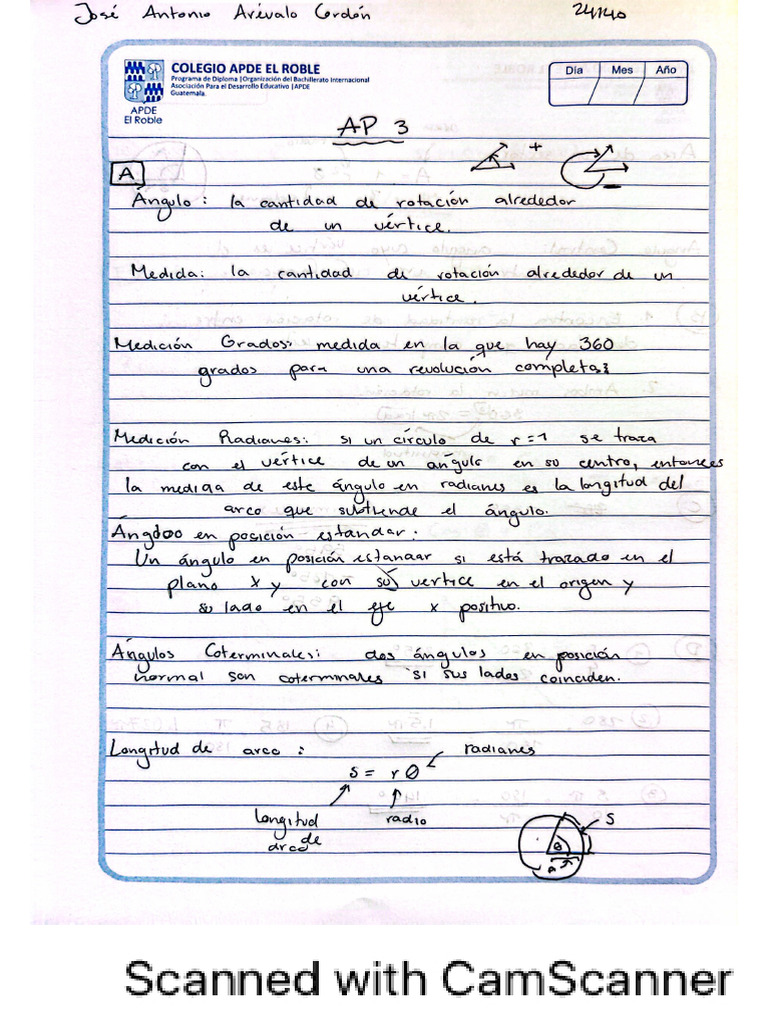 José Antonio Arévalo Cordón 24140
COLEGIO APDE EL ROBLE
Programa de Diploma |Organización del Bachillerato Internacional
Asociación Para el Desarrollo Educativo |APDE
Guatemala.
APDE
El Roble
Día Mes Año
AP 3
A
+
-
Ángulo: la cantidad de rotación alrededor
de un vértice.
Medida: la cantidad de rotación alrededor de un
vértice.
Medición Grados: medida en la que hay 360
grados para una revolución completa
Medición Radianes: si un círculo de r=1 se traza
con el vértice de un angulo en su centro, entonces
la medida de este ángulo en radianes es la longitud del
arco que subtiende el ángulo.
en posición estandar:
Un ángulo en posición estandar si está trazado en el
plano x y con su vertice en el origen y
su lado en el eje x positivo.
Ángulos Coterminales: dos ángulos en posición
normal son coterminales si sus lados coinciden.
Longitud de arco: radianes
s = r θ
longitud de arco
radio
S
θ